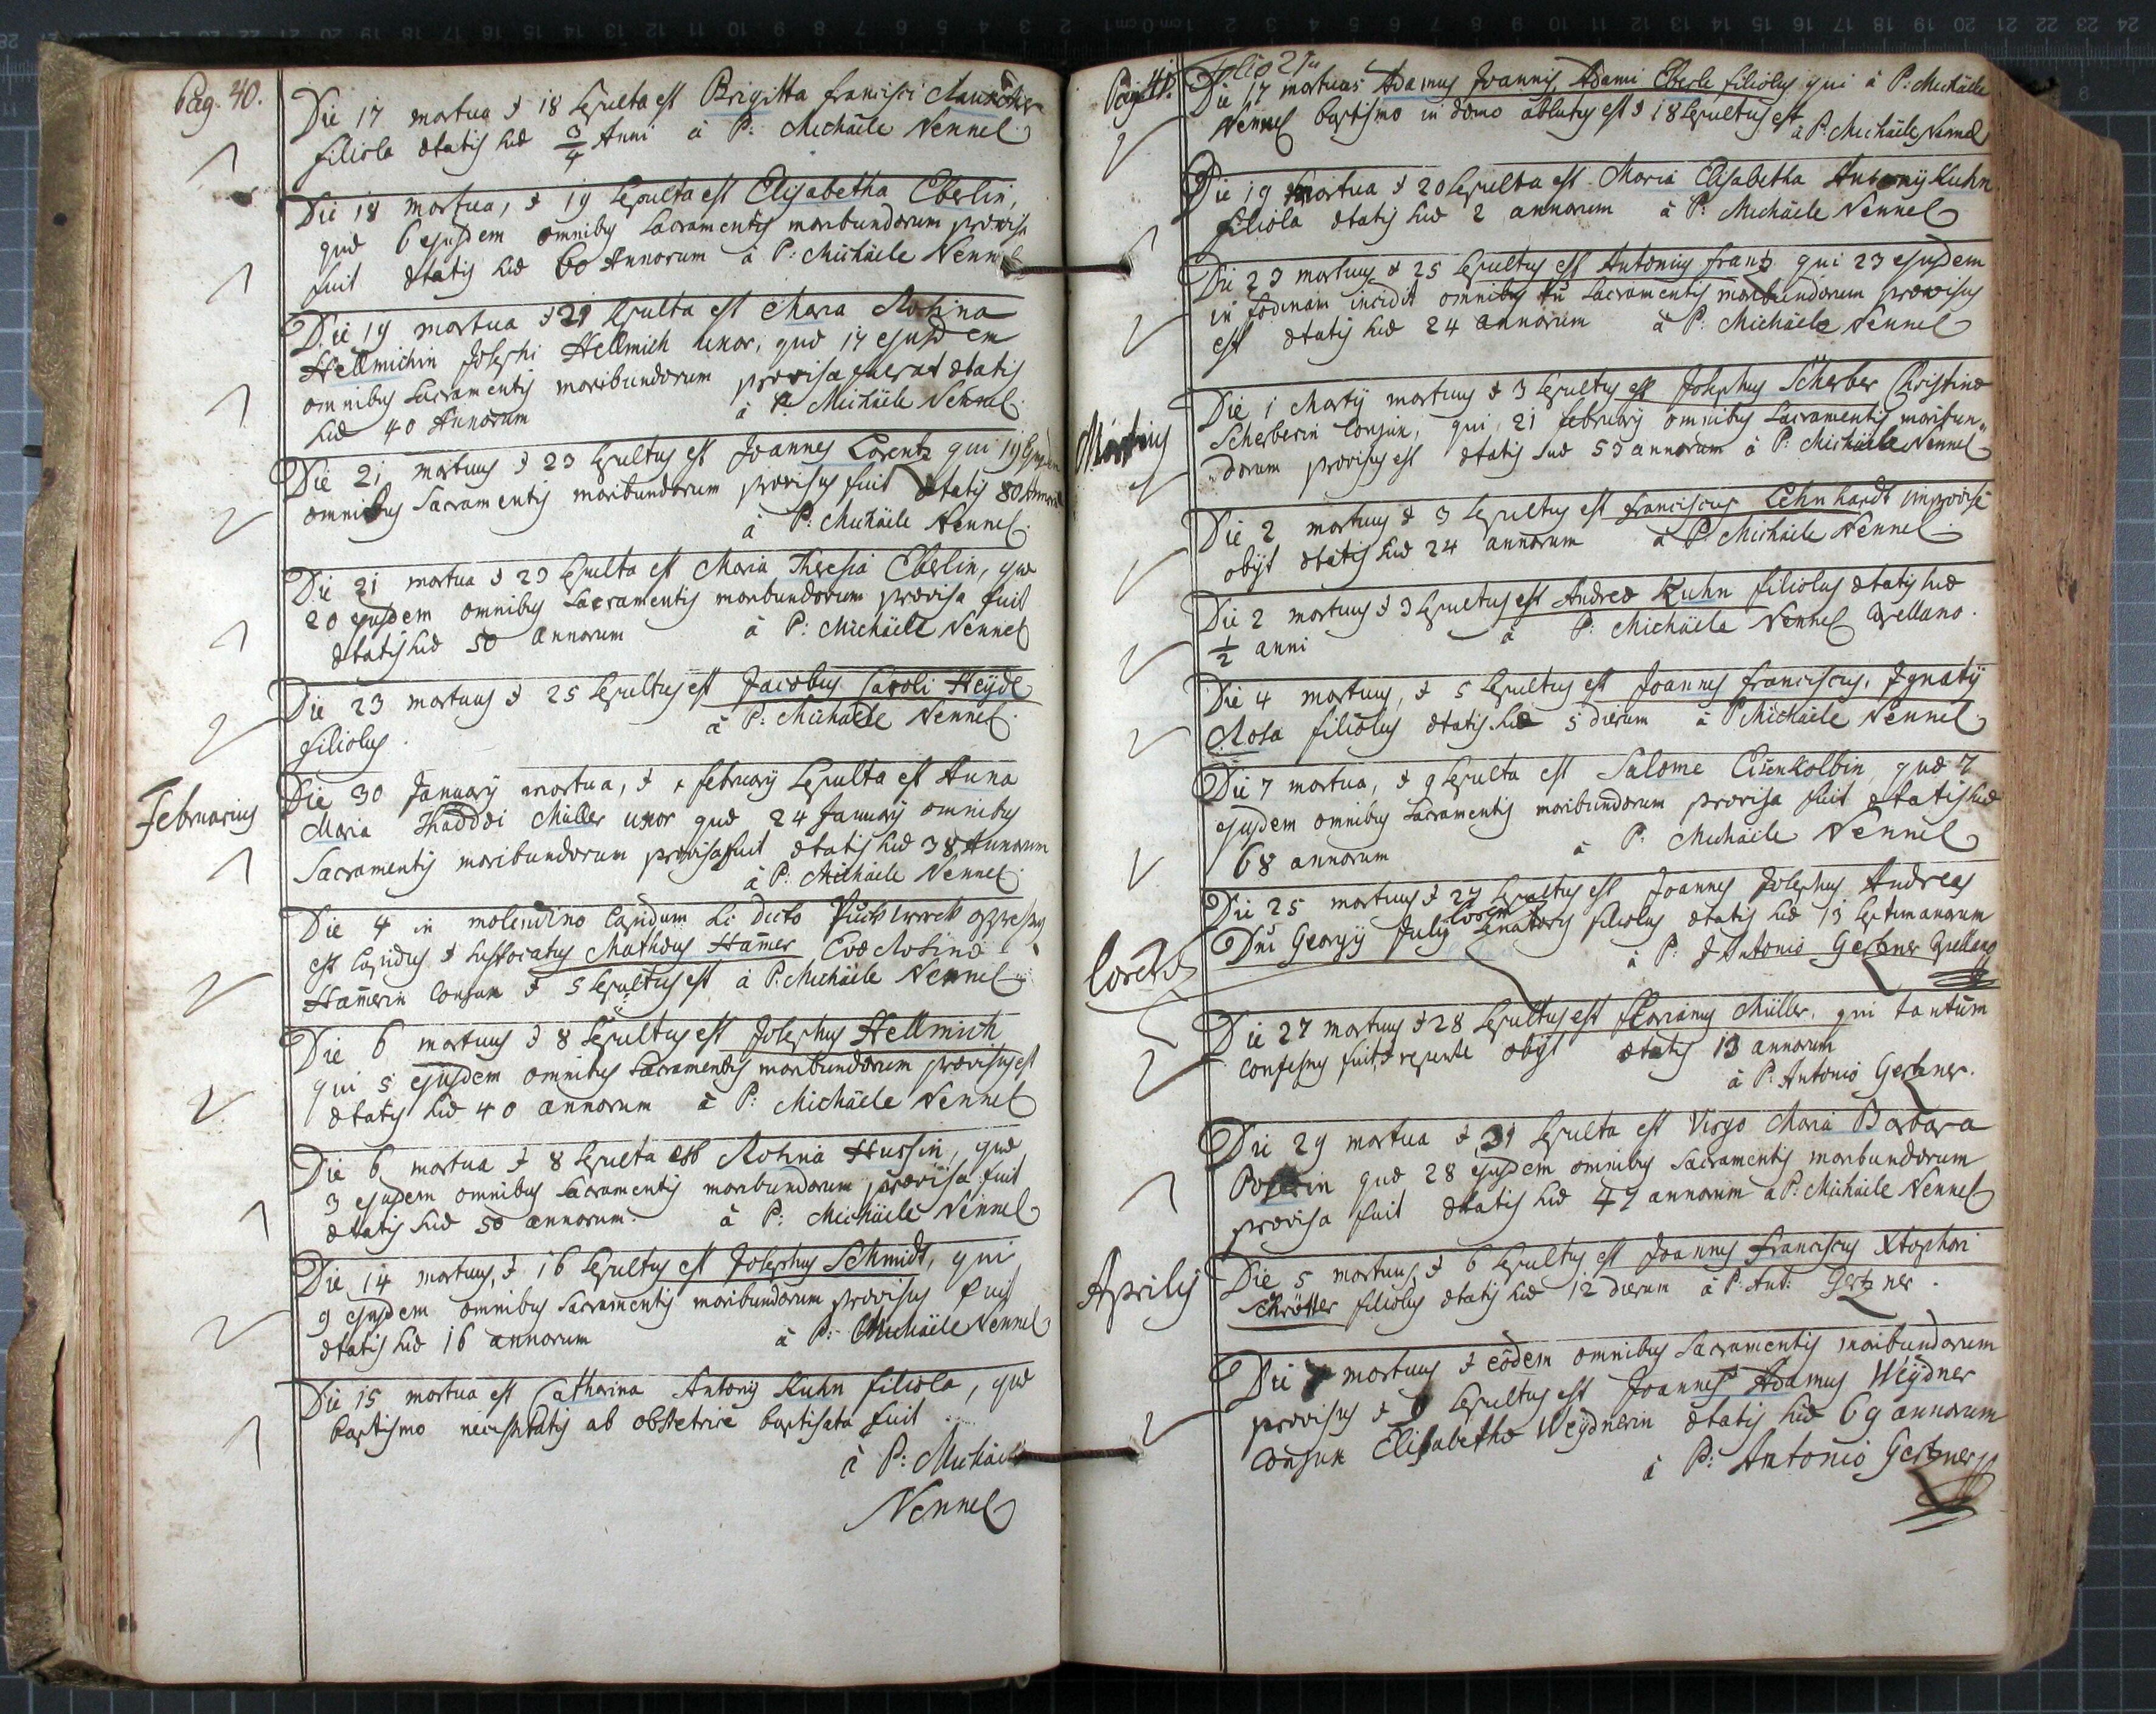 Pag. 40.
Die 17 mortua & 18 Sepulta est Brigitta Francisci
filiola ætatis suæ 3/4 Anni à P: Michäele Nennel
Die 18 mortua, & 19 Sepulta est Elisabetha Eberlin,
quæ 6 ejusdem omnibus Sacramentis moribundorum provisa
fuit ætatis suæ 60 Annorum à P: Michäele Nennel
Die 19 mortua & 21 Sepulta est Maria Rosina
Hellmichin Josephi Hellmich uxor, quæ 17 ejusdem
omnibus Sacramentis moribundorum provisa fuerat ætatis
suæ 40 Annorum à P: Michäele Nennel.
Die 21 mortuus & 23 Sepultus est Joannes Lorentz qui 19 Ejusdem
omnibus Sacramentis moribundorum provisus fuit ætatis 80 Annorum
à P: Michäele Nennel.
Die 21 mortua & 23 Sepulta est Maria Theresia Eberlin, quæ
20 ejusdem omnibus Sacramentis moribundorum provisa fuit
ætatis suæ 50 annorum à P: Michäele Nennel
Die 23 mortuus & 25 Sepultus est Jacobus Caroli Heÿde
filiolus. à P: Michäele Nennel.
Februarius
Die 30 Januarÿ mortua, & 1 februarÿ Sepulta est Anna
Maria Thaddæi Müller uxor quæ 24 Januarÿ omnibus
Sacramentis moribundorum provisa fuit ætatis suæ 38 Annorum
à P: Michäele Nennel.
Die 4 in molendino Lapidum sic dicto oppressus
est Lapidibus & suffocatus Mathæus Ham̄er Evæ Rosinæ
Ham̄erin Conjux & 5 Sepultus est à P: Michäele Nennel.
Die 6 mortuus & 8 Sepultus est Josephus Hellmich
qui 5 ejusdem omnibus Sacramentis moribundorum provisus est
ætatis suæ 40 annorum à P: Michäele Nennel
Die 6 mortua & 8 Sepulta est Rosina Hussin, quæ
3 ejusdem omnibus Sacramentis moribundorum provisa fuit
ætatis suæ 50 annorum. à P: Michäele Nennel
Die 14 mortuus, & 16 Sepultus est Josephus Schmidt, qui
9 ejusdem omnibus Sacramentis moribundorum provisus fuit
ætatis suæ 16 annorum à P: Michäele Nennel
Die 15 mortua est Catharina Antonÿ Kuhn filiola, quæ
baptismo necessitatis ab obstetrice baptisata fuit
à P: Michäele
Nennel
Pag 41.
Folio 21
Die 17 mortuus Adamus Joannis Adami Eberle filiolus qui à P: Michäele
Nennel baptismo in domo ablutus est & 18 Sepultus est
à P: Michäele Nennel
Die 19 mortua & 20 Sepulta est Maria Elisabetha Antonÿ Kuhn
filiola ætatis suæ 2 annorum à P: Michäele Nennel
Die 23 mortuus & 25 Sepultus est Antonius Frantz qui 23 ejusdem
in fodinam incidit omnibus tñ Sacramentis moribundorum provisus
est ætatis suæ 24 annorum à P: Michäele Nennel
Martius
Die 1 Martÿ mortuus & 3 Sepultus est Josephus Scherber Christinæ
Scherberin Conjux, qui 21 februarÿ omnibus Sacramentis moribun„
„dorum provisus est ætatis suæ 53 annorum à P: Michäele Nennel
Die 2 mortuus & 3 Sepultus est Franciscus Lehnhardt improvisè
obÿt ætatis suæ 24 annorum à P: Michäele Nennel.
Die 2 mortuus & 3 Sepultus est Andreæ Kuhn filiolus ætatis suæ
1/2 anni à P: Michäele Nennel Capellano.
Die 4 mortuus, & 5 Sepultus est Joannes Franciscus, Ignatÿ
Rosa filiolus ætatis suæ 5 dierum à P: Michäele Nennel
Die 7 mortua, & 9 Sepulta est Salome Eisenkolbin quæ 7
ejusdem omnibus Sacramentis moribundorum provisa fuit ætatis suæ
68 annorum à P: Michäele Nennel
Die 25 mortuus & 27 Sepultus est Joannes Josephus Andreas
Dñi Georgÿ Julÿ Senatoris filiolus ætatis suæ 13 Septimanarum
à P: Antonio Gertzner Capellano
Die 27 mortuus & 28 Sepultus est Florianus Müller, qui tantum
confessus fuit, & repente obÿt ætatis 13 annorum
à P: Antonio Gertzner.
Die 29 mortua & 31 Sepulta est Virgo Maria Barbara
quæ 28 ejusdem omnibus Sacramentis moribundorum
provisa fuit ætatis suæ 47 annorum à P: Michäele Nennel
Aprilis
Die 5 mortuus & 6 Sepultus est Joannes Franciscus Xtophori
Schrötter filiolus ætatis suæ 12 dierum à P: Ant: Gertzner.
Die 7 mortuus & eôdem omnibus Sacramentis moribundorum
provisus & Sepultus est Joannes Adamus Weÿdner
Conjux Elisabethæ Weÿdnerin ætatis suæ 69 annorum
à P: Antonio Gertzner